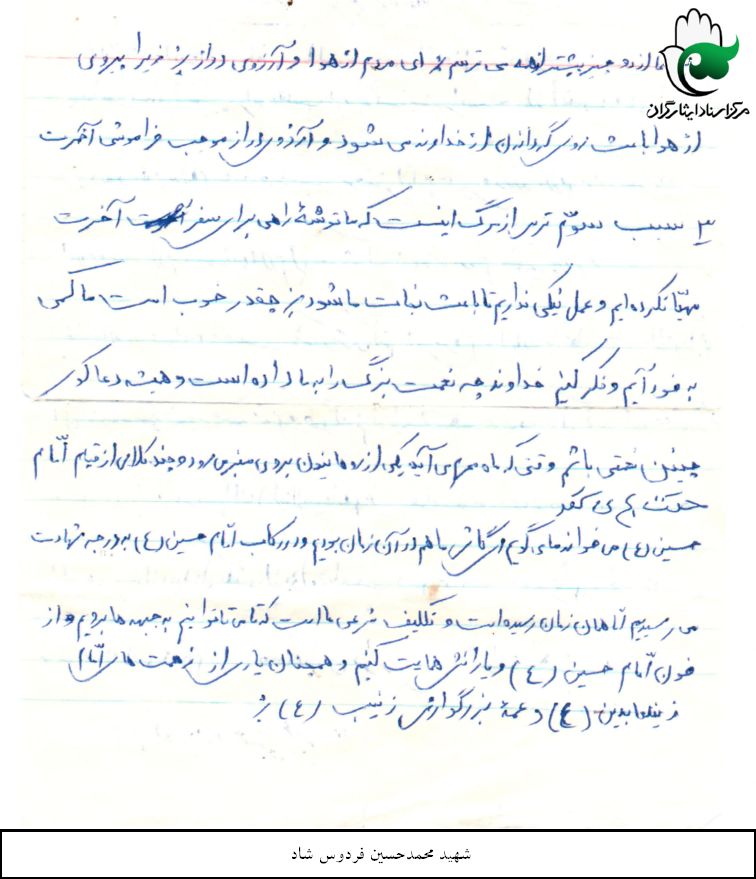 مرکز اسناد ایثارگران
ما از دو چیز بیشتر از همه می ترسم ای مردم از هوا و آرزوی دراز زیرا پیروی
از هوا باعث روی گرداندن از خداوند می شود و آرزوی دراز موجب فراموشی آخرت
۳ سبب سوّم ترس از مرگ اینست که ما توشهٔ راهی برای سفر آخرت
مهیّا نکرده ایم و عمل نیکی نداریم تا باعث نجات ما شود چقدر خوب است ما کمی
به خود آئیم و فکر کنیم خداوند چه نعمت بزرگی را به ما داده است و همیشه دعا گوی
چنین نعمتی باشیم وقتی که ماه محرم می آید یکی از روحانیون بروی منبر می رود و چند کلامی از قیام امّام
حسین (ع) می خواند ما می گویم ای کاش ما هم در آن زمان بودیم و در رکاب امّام حسین (ع) به درجه شهادت
می رسیدیم امّا همان زمان رسیده است و تکلیف شرعی ما است که تا می توانیم به جبهه ها برویم و از
خون امّام حسین (ع) و یارانش حمایت کنیم و همچنان یاری از زحمت های امّام
زینلعابدین (ع) و عمهٔ بزرگوارش زینب (ع)
شهید محمدحسین فردوس شاد